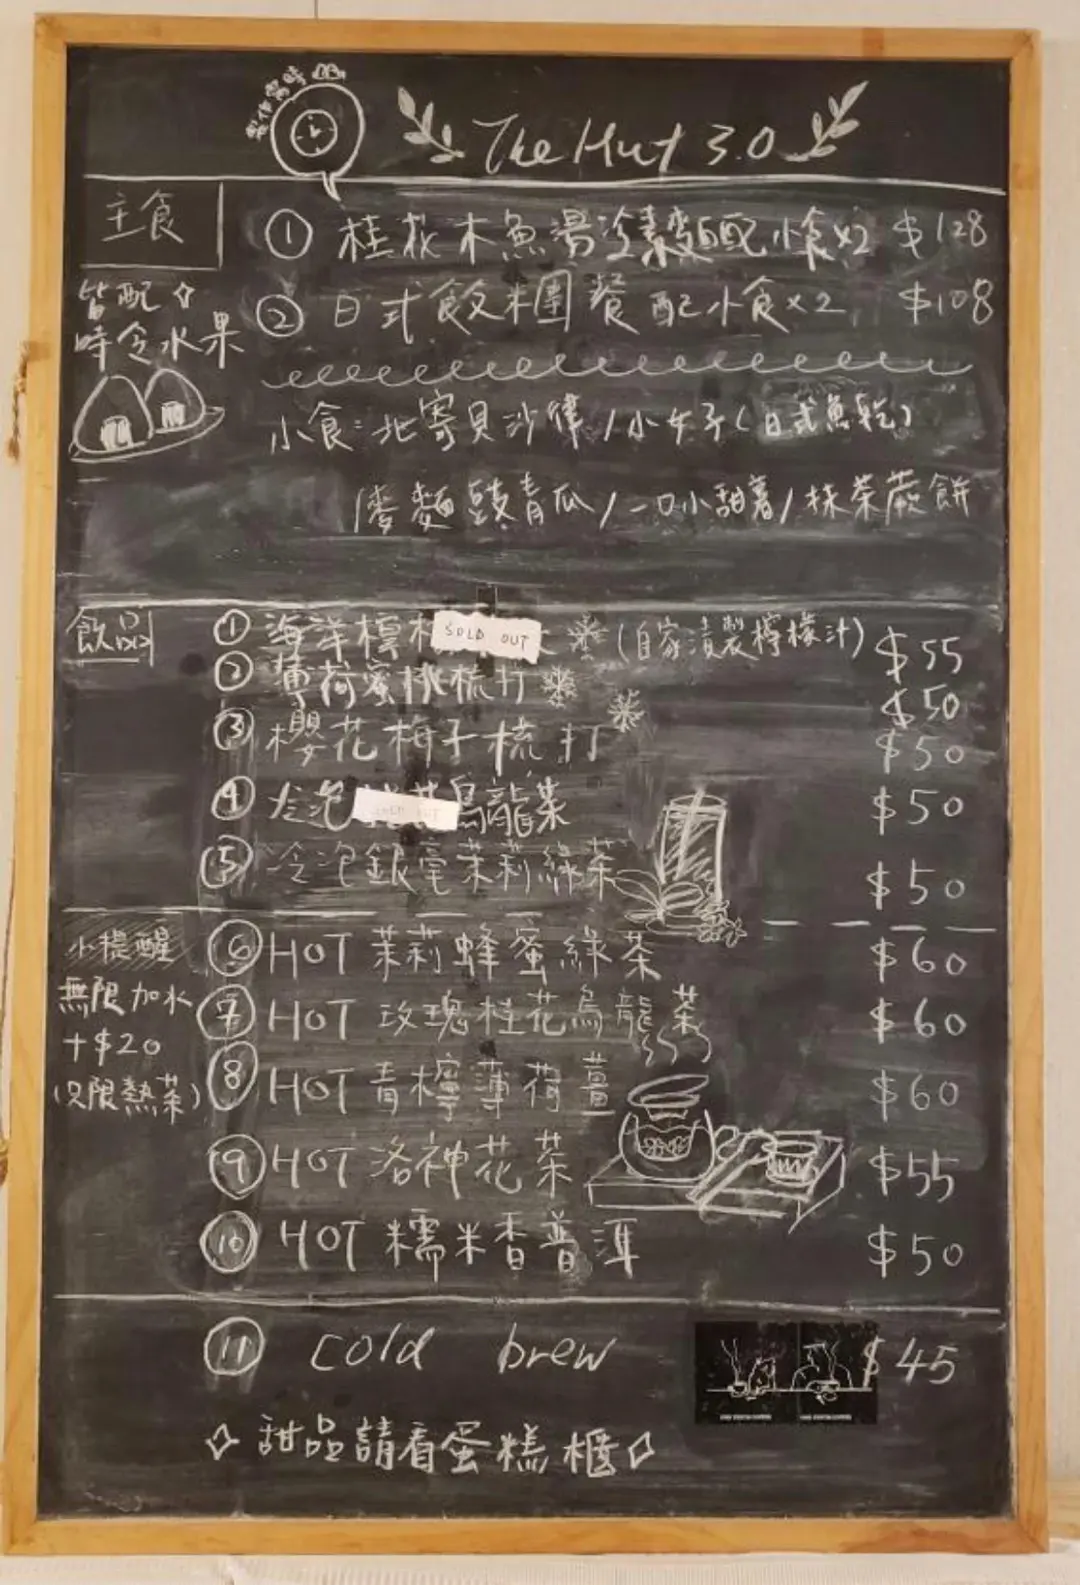 製作需時
The Hut 3.0
主食
皆配
時令水果
① 桂花木魚湯冷素麵配小食x2 $128
② 日式飯糰餐配小食x2 $108
小食：北寄貝沙律/小女子(日式魚乾)
/麥麵豉青瓜/一口小甜薯/抹茶蕨餅
飲品
① 海洋檸 SOLD OUT (自家漬製檸檬汁) $55
② 薄荷蜜桃梳打 $50
③ 櫻花梅子梳打 $50
④ 冷泡 SOLD OUT 烏龍茶 $50
⑤ 冷泡銀毫茉莉綠茶 $50
小提醒
無限加水
+$20
(只限熱茶)
⑥ HOT 茉莉蜂蜜綠茶 $60
⑦ HOT 玫瑰桂花烏龍茶 $60
⑧ HOT 青檸薄荷薑 $60
⑨ HOT 洛神花茶 $55
⑩ HOT 糯米香普洱 $50
⑪ cold brew $45
甜品請看蛋糕櫃